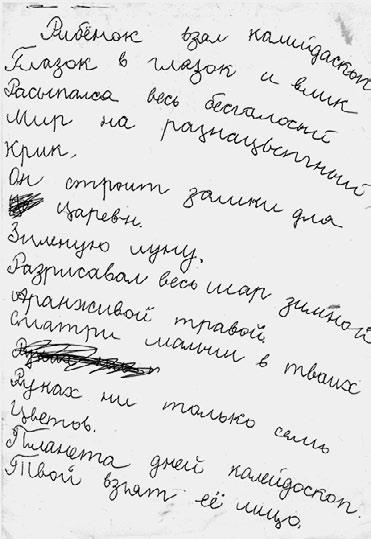 Рибёнок взял калийдаскоп
Глазок в глазок и влик
Расыпалса весь бесгалоский
Мир на разнацыетный
Крик.
Он строит замики для
царевн.
Зиленую луну.
Разрисавал весь шар зимной
Аранживой травой
Сматри малчи в тваих
Руках ни только семь
Цветов.
Планета дней калейдоскоп.
Твой взгят её лицо.